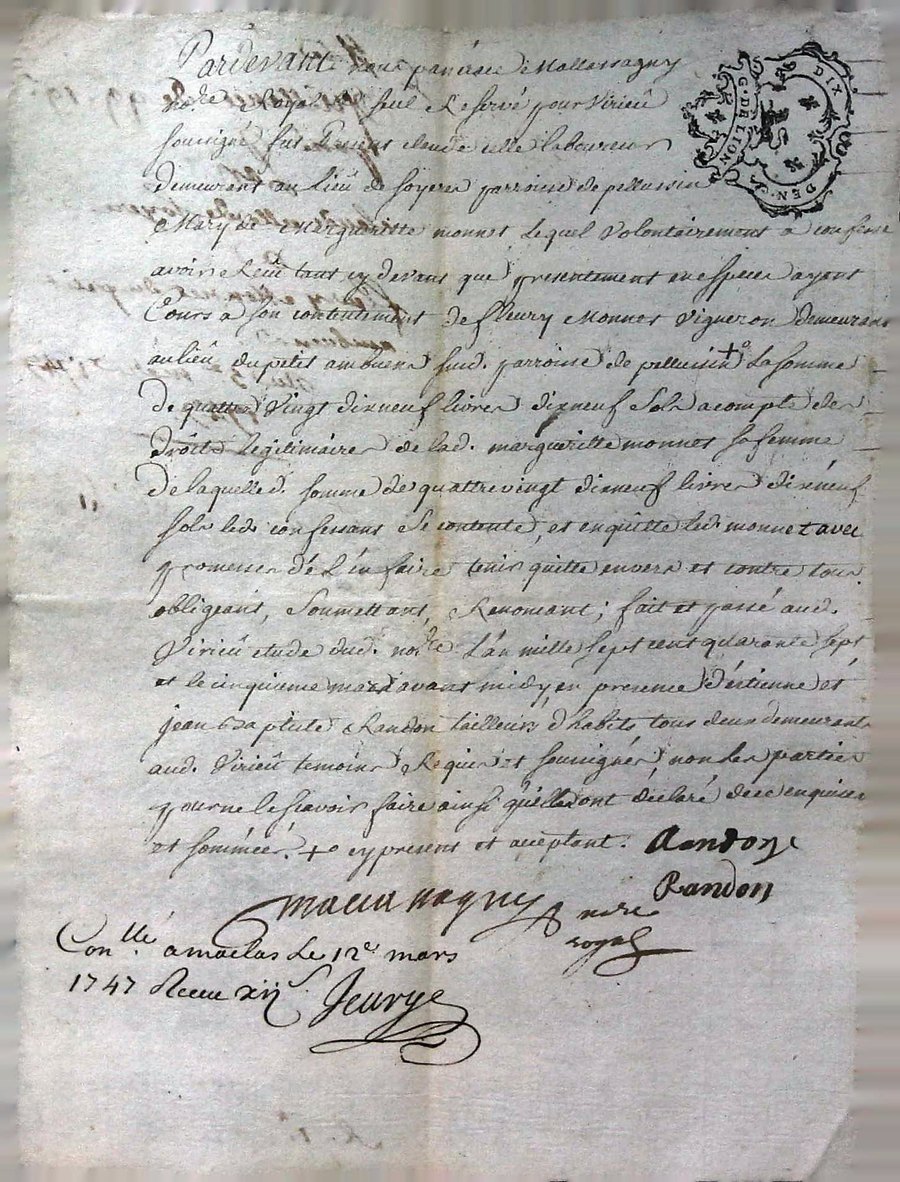 Pardevant nous
no.re Royal et seul Reservé pour Virieû
soussigné fut Present claude celle laboureur
demeurant au lieû de soyere parroisse de pellussin
Mary de Margueritte monnet lequel Volontairement a confessé
avoir Receû tant cy devant que presentement en especes ayant
Cours a son contentement de fleury Monnet Vigneron demeurant
au lieû du petit ambuent sud. parroisse de pelussin +o La somme
de quattre Vingt dixneuf livres dixneuf sols acompte des
droits legitimaires de lad. margueritte monnet sa femme
de laquelle d. somme de quattrevingt dixneuf livres dixneuf
sols led. confessant se contente, et en quitte led. monnet avec
promesse de l'en faire tenir quitte envers et contre tous
obligeant, soumettant, Renonçant; fait et passé aud.
Virieû etude dud. no.re L'an mille sept cent quarante sept
et le cinquieme mars avant midy, en presence d'ettienne et
jean baptiste Randon tailleurs d'habits tous deux demeurant
aud. Virieû temoins Requis et soussignés non les parties
pour ne le sçavoir faire ainsi qu'elles ont déclaré de ce enquises
et somméés. +o cy present et acceptant. Randon
Randon
no.re
royal
Con.llé a maclas le 12e mars
1747 Receu xijs
G. DE LION
DEN.